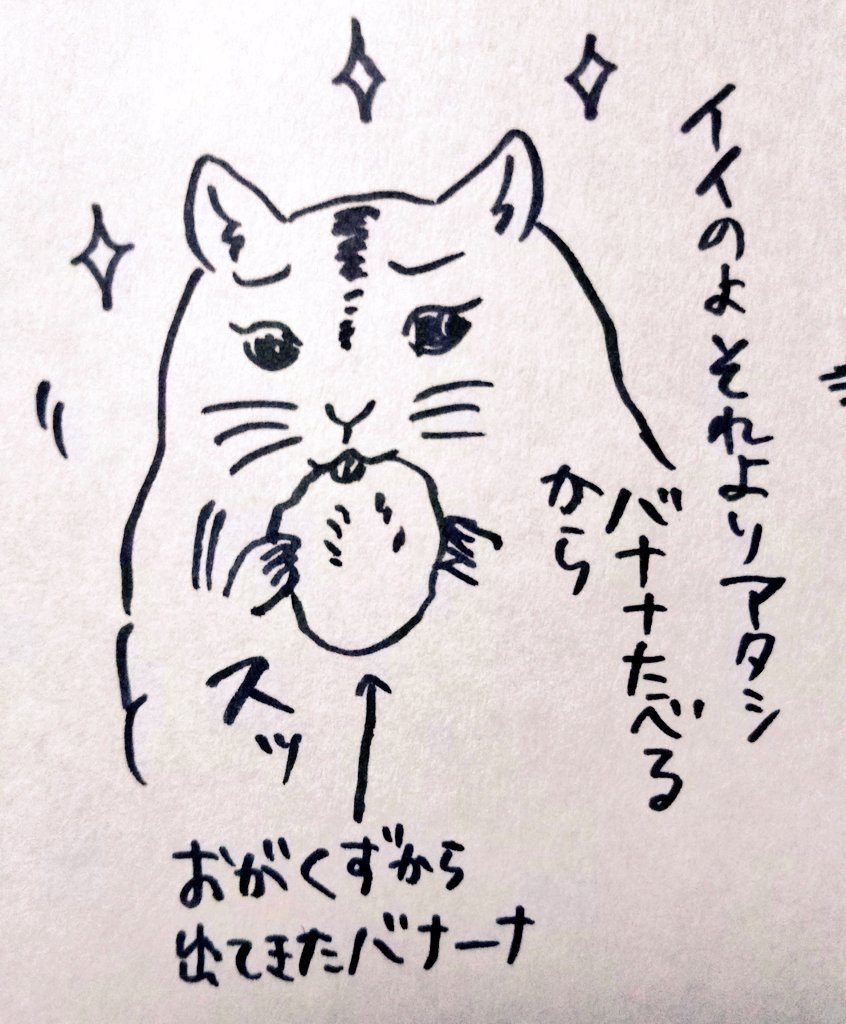 イイのよそれよりアタシ
バナナたべる
から
スッ
おがくずから
出てきたバナーナ